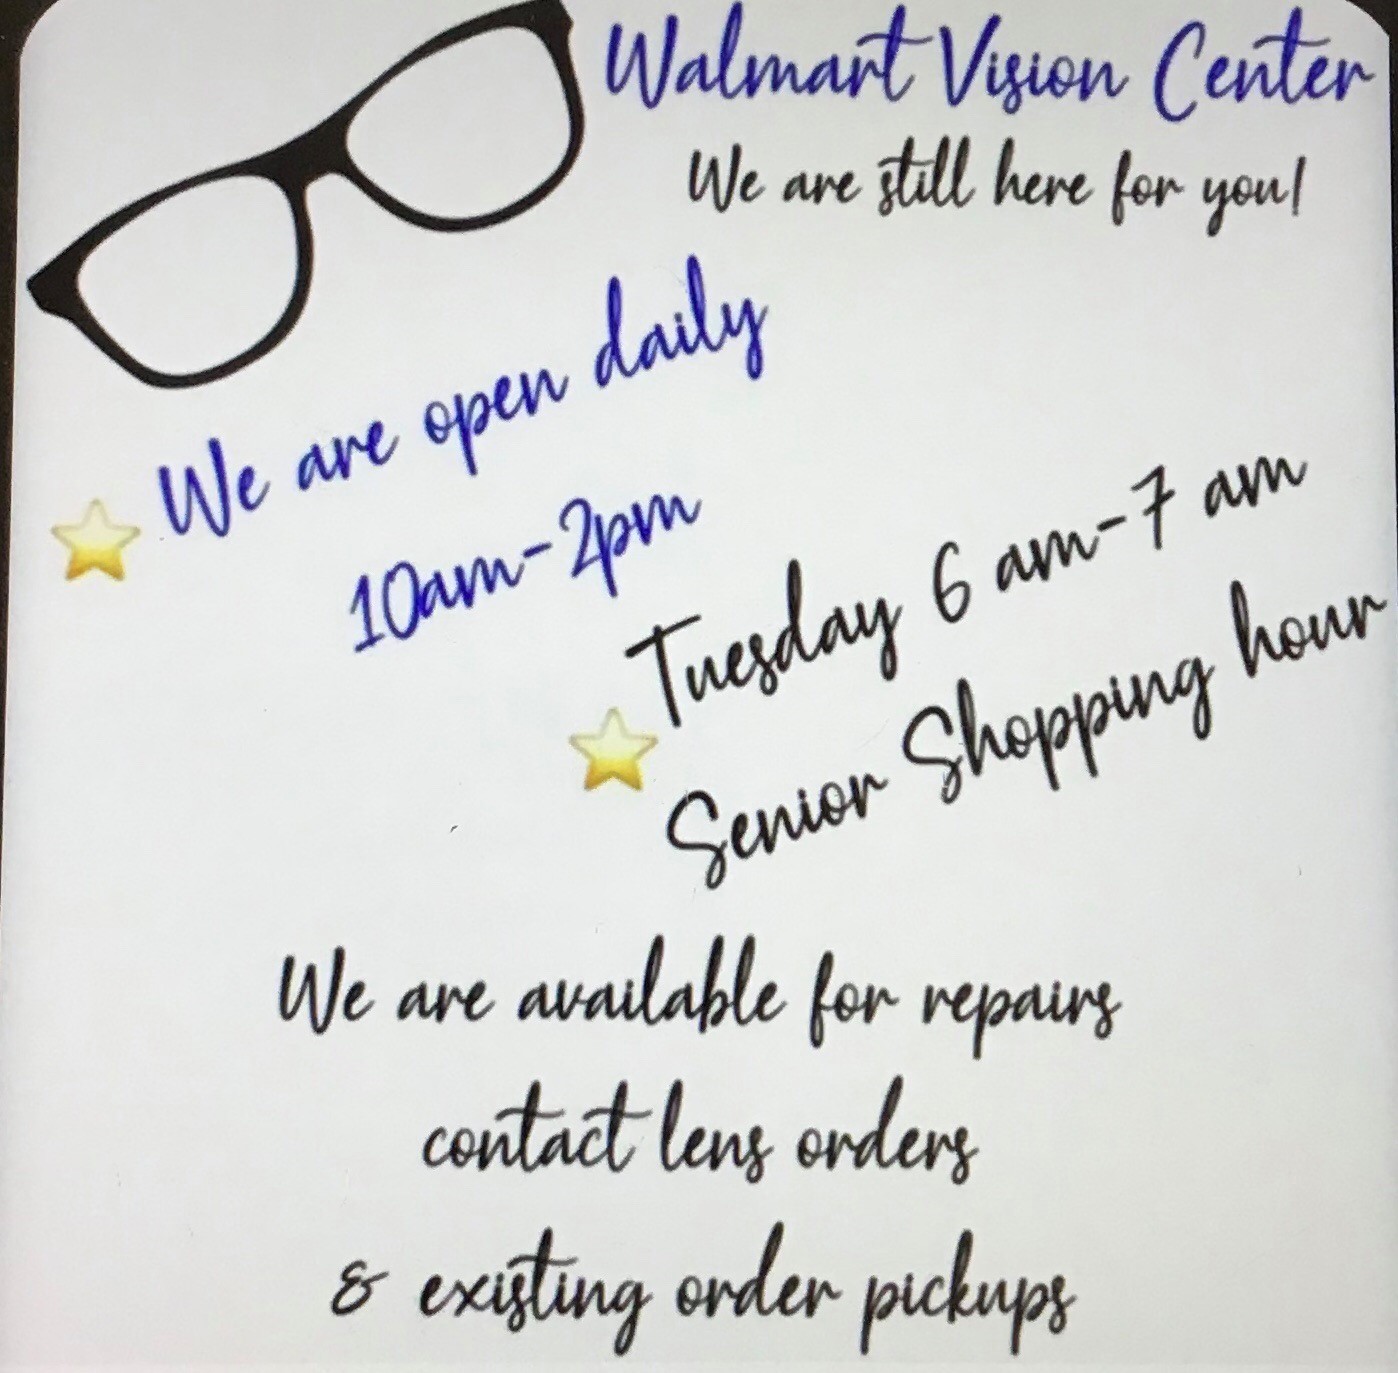 Walmart Vision Center
We are still here for you!
We are open daily
10am-2pm
Tuesday 6 am-7 am
Senior Shopping hour
We are available for repairs
contact lens orders
& existing order pickups